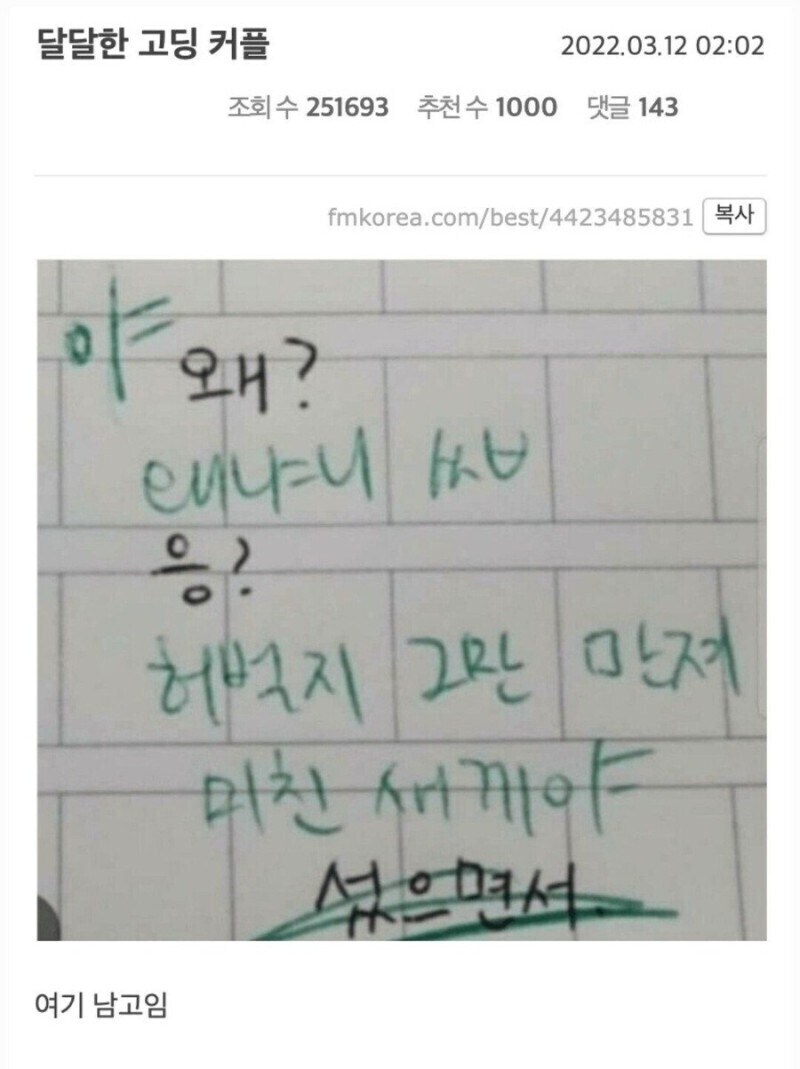 달달한 고딩 커플 2022.03.12 02:02
조회 수 251693 추천 수 1000 댓글 143
fmkorea.com/best/4423485831 복사
야
왜?
ㅆㅂ
응?
허벅지 그만 만져
미친 새끼야
섰으면서.
여기 남고임